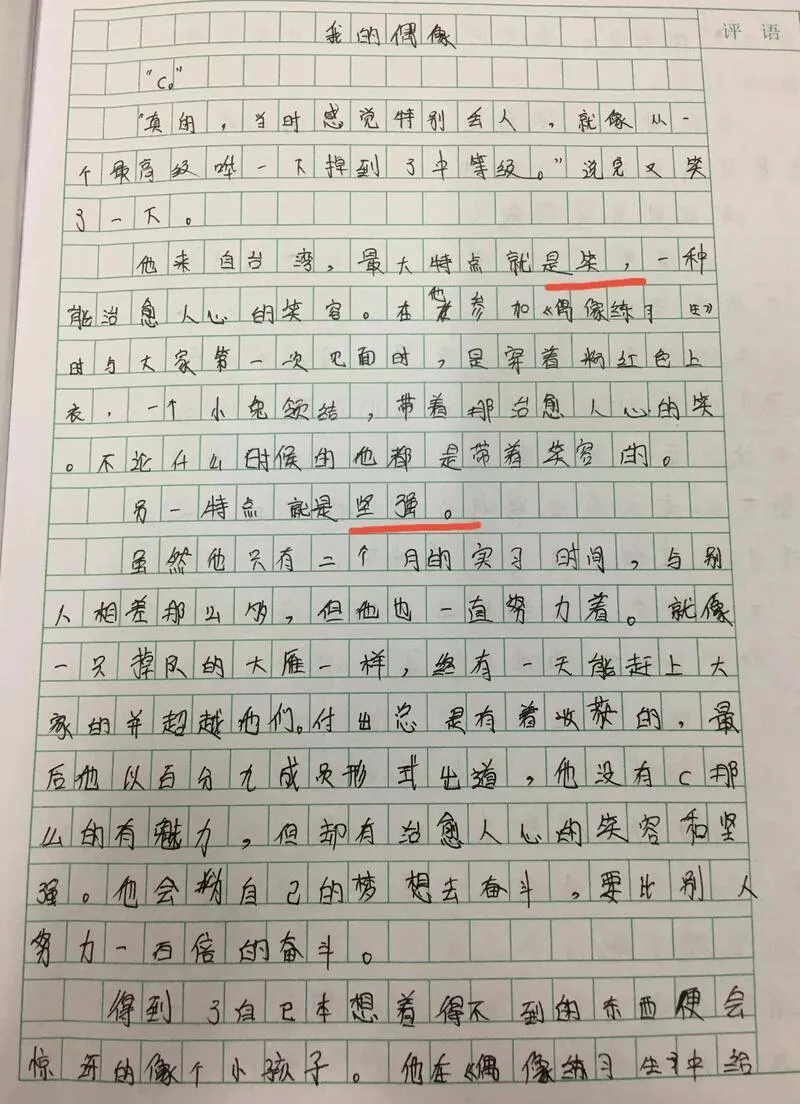 评语
我的偶像
"C。"
"真的，当时感觉特别丢人，就像从一
个最高级哗一下掉到了中等级。"说完又笑
了一下。
他来自台湾，最大特点就是笑，一种
能治愈人心的笑容。在他参加《偶像练习生》
时与大家第一次见面时，是穿着粉红色上
衣，一个小兔领结，带着那治愈人心的笑
。不论什么时候的他都是带着笑容的。
另一特点就是坚强。
虽然他只有二个月的实习时间，与别
人相差那么多，但他也一直努力着。就像
一只掉队的大雁一样，终有一天能赶上大
家的并超越他们。付出总是有着收获的，最
后他以百分九成员形式出道，他没有C那
么的有魅力，但却有治愈人心的笑容和坚
强。他会为自己的梦想去奋斗，要比别人
努力一百倍的奋斗。
得到了自己本想着得不到的东西便会
惊讶的像个小孩子。他在《偶像练习生》中给